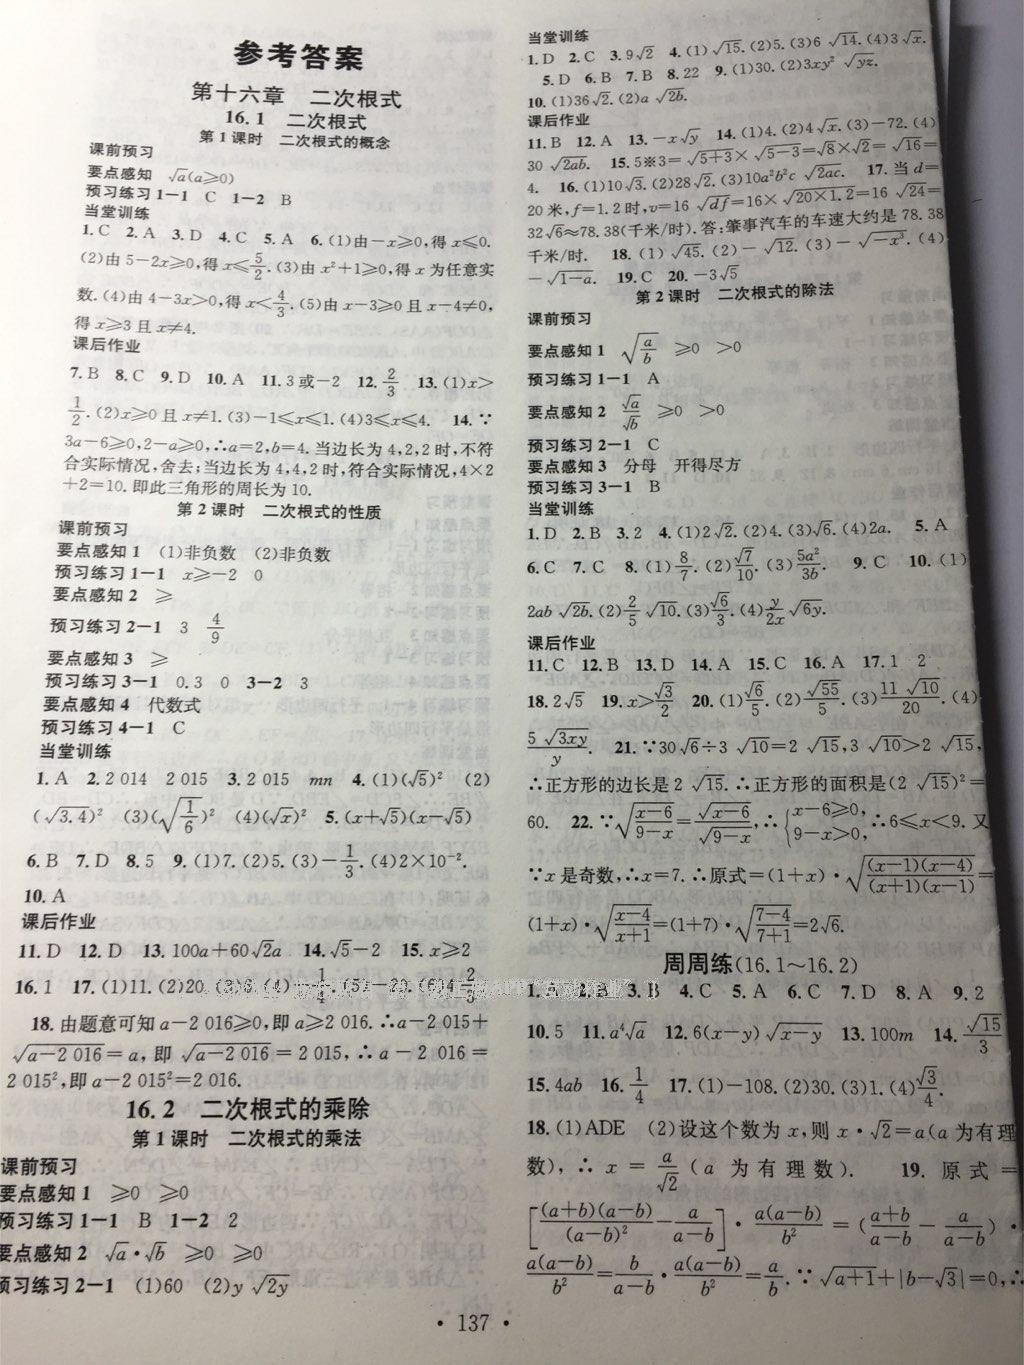 参考答案
第十六章 二次根式
16.1 二次根式
第1课时 二次根式的概念
课前预习
要点感知 √a(a≥0)
预习练习1-1 C 1-2 B
当堂训练
1.C 2.A 3.D 4.C 5.A 6.(1)由-x≥0,得x≤0.
(2)由5-2x≥0,得x≤5/2.(3)由x²+1≥0,得x为任意实
数.(4)由4-3x>0,得x<4/3.(5)由x-3≥0且x-4≠0,
得x≥3且x≠4.
课后作业
7.B 8.C 9.D 10.A 11.3或-2 12.2/3 13.(1)x>
1/2.(2)x≥0且x≠1.(3)-1≤x≤1.(4)3≤x≤4. 14.∵
3a-6≥0,2-a≥0,∴a=2,b=4.当边长为4,2,2时,不符
合实际情况,舍去;当边长为4,4,2时,符合实际情况,4×2
+2=10.即此三角形的周长为10.
第2课时 二次根式的性质
课前预习
要点感知1 (1)非负数 (2)非负数
预习练习1-1 x≥-2 0
要点感知2 ≥
预习练习2-1 3 4/9
要点感知3 ≥
预习练习3-1 0.3 0 3-2 3
要点感知4 代数式
预习练习4-1 C
当堂训练
1.A 2.2 014 2 015 3.2 015 mn 4.(1)(√5)² (2)
(√3.4)² (3)(√(1/6))² (4)(√x)² 5.(x+√5)(x-√5)
6.B 7.D 8.5 9.(1)7.(2)5.(3)-1/3.(4)2×10⁻².
10.A
课后作业
11.D 12.D 13.100a+60√2a 14.√5-2 15.x≥2
16.1 17.(1)11.(2)20.
18.由题意可知a-2 016≥0,即a≥2 016.∴a-2 015+
√(a-2 016)=a,即√(a-2 016)=2 015,∴a-2 016=
2 015²,即a-2 015²=2 016.
16.2 二次根式的乘除
第1课时 二次根式的乘法
课前预习
要点感知1 ≥0 ≥0
预习练习1-1 B 1-2 2
要点感知2 √a·√b ≥0 ≥0
预习练习2-1 (1)60 (2)y√(2y)
当堂训练
1.D 2.C 3.9√2 4.(1)√15.(2)5.(3)6√14.(4)3√x.
5.D 6.B 7.B 8.22 9.(1)30.(2)3xy²√(yz).
10.(1)36√2.(2)a√(2b).
课后作业
11.B 12.A 13.-x√y 14.(1)4.(2)4√x.(3)-72.(4)
30√(2ab). 15.5※3=√(5+3)×√(5-3)=√8×√2=√16=
4. 16.(1)10√3.(2)28√2.(3)10a²b²c√(2ac). 17.当d=
20米,f=1.2时,v=16√(df)=16×√(20×1.2)=16√24=
32√6≈78.38(千米/时).答:肇事汽车的车速大约是78.38
千米/时. 18.(1)√45.(2)-√12.(3)-√(-x³).(4)
-√(1-a). 19.C 20.-3√5
第2课时 二次根式的除法
课前预习
要点感知1 √(a/b) ≥0 >0
预习练习1-1 A
要点感知2 √a/√b ≥0 >0
预习练习2-1 C
要点感知3 分母 开得尽方
预习练习3-1 B
当堂训练
1.D 2.B 3.2 4.(1)2√2.(2)4.(3)√6.(4)2a. 5.A
6.C 7.C 8.(1)8/7.(2)√7/10.(3)5a²/3b. 9.C 10.(1)
2ab√(2b).(2)2/5√10.(3)√6/3.(4)y/2x√(6y).
课后作业
11.C 12.B 13.D 14.A 15.C 16.A 17.1 2
18.2√5 19.x>√3/2 20.(1)√6/5.(2)√55/5.(3)11√10/20.(4)
5√(3xy)/y. 21.∵30√6÷3√10=2√15,3√10>2√15,
∴正方形的边长是2√15.∴正方形的面积是(2√15)²=
60. 22.∵√((x-6)/(9-x))=√(x-6)/√(9-x),∴{x-6≥0,9-x>0,∴6≤x<9.又
∵x是奇数,∴x=7.∴原式=(1+x)·√((x-1)(x-4)/(x+1)(x-1))=
(1+x)·√((x-4)/(x+1))=(1+7)·√((7-4)/(7+1))=2√6.
周周练(16.1~16.2)
1.B 2.B 3.B 4.C 5.A 6.C 7.D 8.A 9.2
10.5 11.a⁴√a 12.6(x-y)√(x-y) 13.100m 14.√15/3
15.4ab 16.1/4 17.(1)-108.(2)30.(3)1.(4)√3/4.
18.(1)ADE (2)设这个数为x,则x·√2=a(a为有理
数),∴x=a/√2(a为有理数). 19.原式=
[(a+b)(a-b)/(a-b)²-a/(a-b)]·a(a-b)/b²=((a+b)/(a-b)-a/(a-b))·
a(a-b)/b²=b/(a-b)·a(a-b)/b²=a/b.∵√(a+1)+|b-√3|=0,∴
·137·